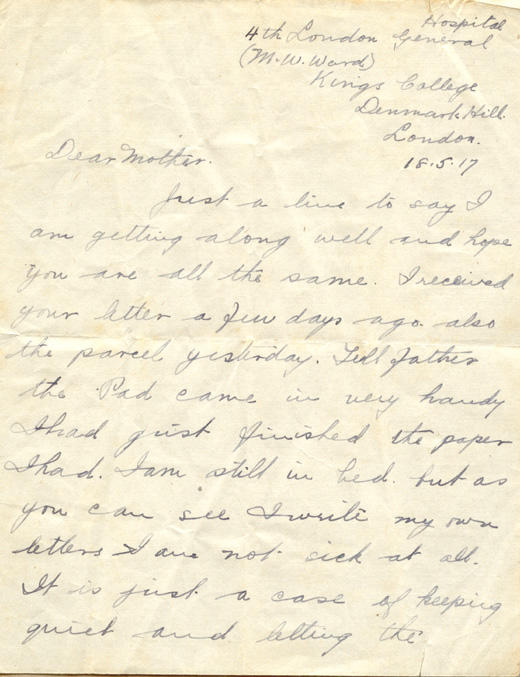 Hospital
4th London General
(M.W. Ward)
Kings College
Denmark Hill.
London.
18.5.17
Dear Mother.
Just a line to say I
am getting along well and hope
you are all the same. I received
your letter a few days ago. also
the parcel yesterday. Tell father
the Pad came in very handy
I had just finished the paper
I had. I am still in bed. but as
you can see I write my own
letters I am not sick at all.
It is just a case of keeping
quiet and letting the